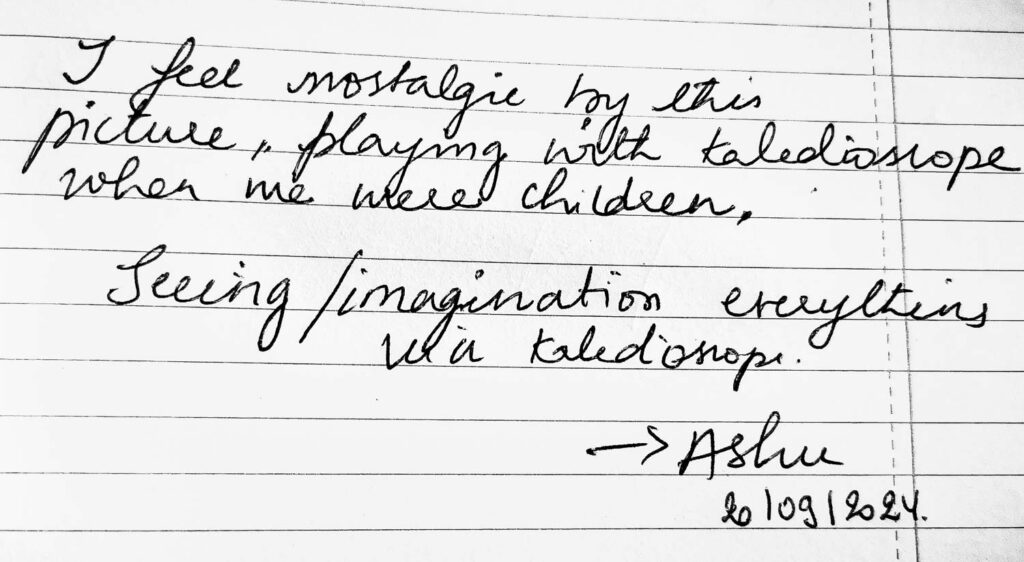 I feel nostalgic by this
picture,, playing with kaledioscope
when we were children.
Seeing/imagination everything
via kaledioscope.
→ Ashu
20/09/2024.